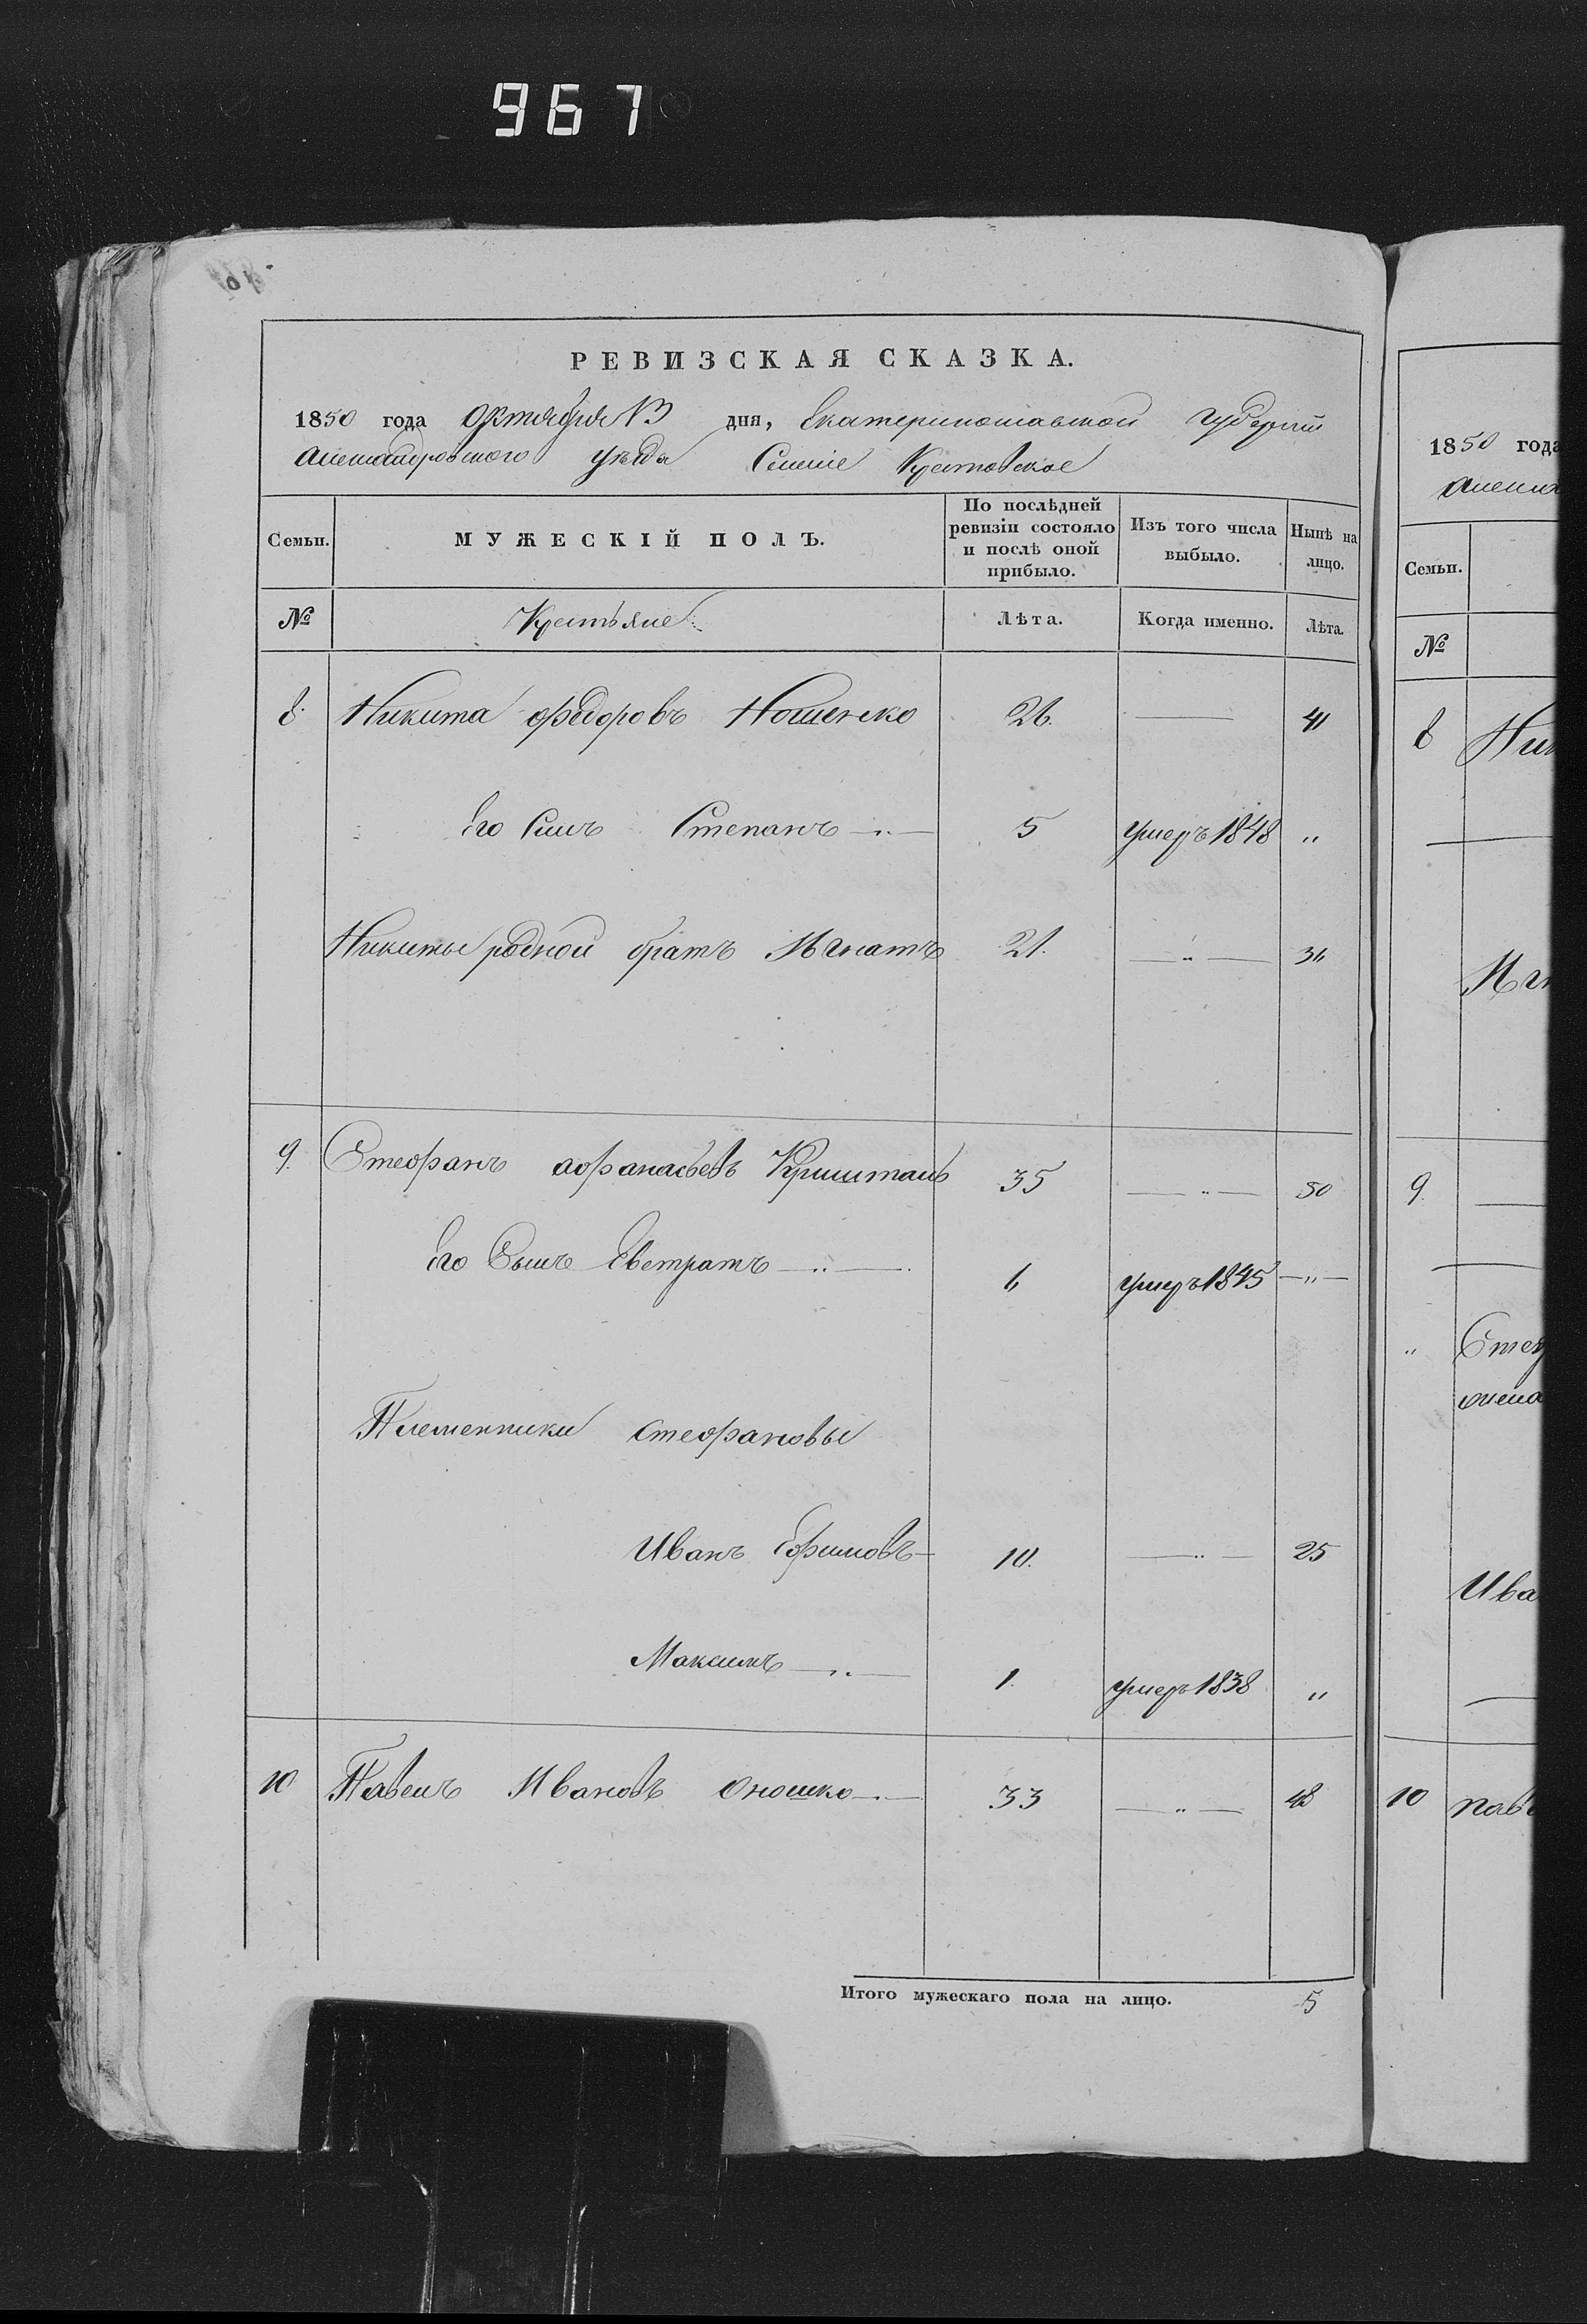 967
РЕВИЗСКАЯ СКАЗКА.
1850 года Октября 13 дня, Екатеринославской губернiи
Александровского уезда Селенiе
МУЖЕСКІЙ ПОЛЪ.
Семьи.
По послѣдней ревизіи состояло и послѣ оной прибыло.
Изъ того числа выбыло.
Нынѣ на лицо.
№ Крестьяне Лѣта. Когда именно. Лѣта.
8. Никита Федоровъ Ношенко 26. — 41
Его Сынъ Степанъ —"— 5 умеръ 1848 "
Никиты родной братъ Игнатъ 21. —"— 36
9. Стефанъ Афанасьевъ 35 —"— 50
Его Сынъ Евстратъ —"— 6 умеръ 1845 —"—
Племенники Стефановы
Иванъ Ефимовъ — 10. —"— 25
Максимъ —"— 1. умеръ 1838 "
10 Павелъ Ивановъ Оношко —"— 33 —"— 48
Итого мужескаго пола на лицо. 5
1850 года
Семьи.
№
8 Ник
Игн
9.
" Стеф
жена
Ива
10 Паве